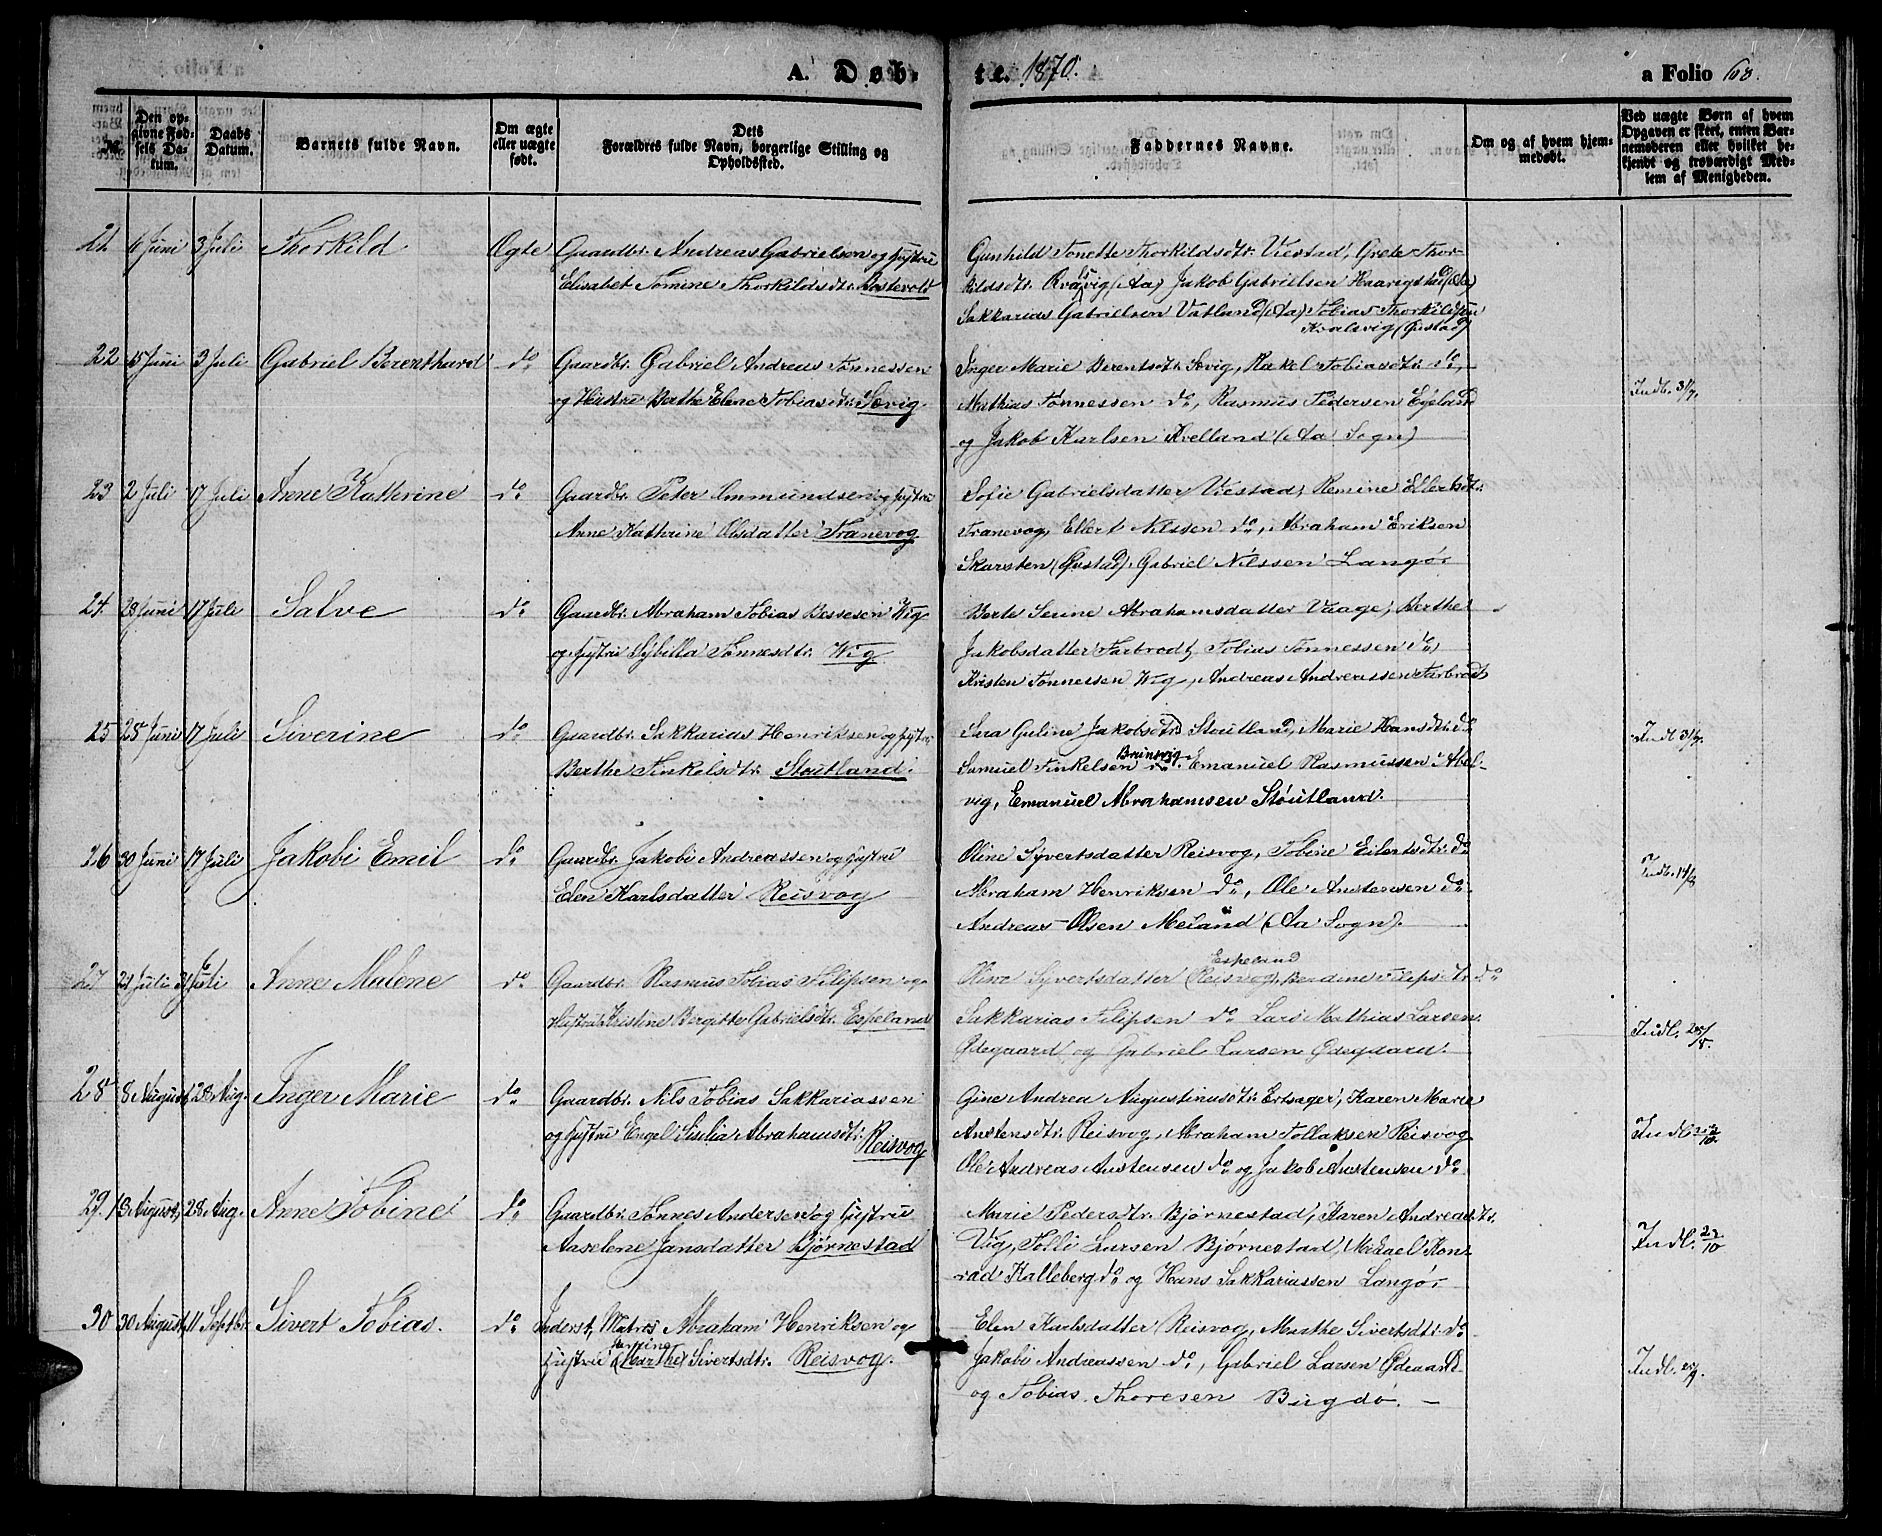 A. Døb-
te. 1870.
a Folio 68.
№
Den op-
givne Fød-
sels Da-
tum.
Daabs
Datum.
Barnets fulde Navn.
Om ægte
eller uægte
født.
Dets
Forældres fulde Navn, borgerlige Stilling og
Opholdssted.
Faddernes Navne.
Om og af hvem hjem-
medøbt.
Ved uægte Børn af hvem
Opgaven er skeet, enten Bar-
nemoderen eller hvilket be-
kjendt og troværdigt Med-
lem af Menigheden.
21 6 Juni 3 Juli Thorkild. Ægte Gaardbr. Andreas Gabrielsen og Hustru
Elisabet Tomine Thorkildsdtr.
Gunhild Tonette Thorkildsdtr. Viestad, Grete Thor-
kildsdtr. (Aa) Jakob Gabrielsen Haarigstad (Aa)
Sakkarias Gabrielsen Vatland (Aa) Tobias Thorkildsen
22 15 Juni 3 Juli Gabriel Berenthard do. Gaardbr. Gabriel Andreas Tønnessen
og Hustru Berthe Elene Tobiasdtr. Sævig.
Inger Marie Berentsdtr. Sævig, Rakel Tobiasdtr. do,
Mathias Tønnessen do, Rasmus Pedersen Egeland
og Jakob Karlsen Kvelland (Aa Sogn)
Indb. 31/7.
23 2 Juli 17 Juli Anne Kathrine do. Gaardbr. Peter Ommundsen og Hustru
Anne Kathrine Olsdatter Tranevog
Sofie Gabrielsdatter Viestad, Remine Ellertsdtr.
Tranevog, Ellert Nilssen do, Abraham Eriksen
Skarsten, Gabriel Nilssen Langø.
24. 28 Juni 17 Juli Salve do. Gaardbr. Abraham Tobias Bessesen Wig
og Hustru Sybilla Tønnesdtr. Wig.
Berte Serine Abrahamsdatter Vaage, Berthe
Jakobsdatter Farbrodt, Tobias Tønnessen do,
Kristen Tønnessen Wig, Andreas Andreassen Farbrodt
25 25 Juni 17 Juli Siverine do. Gaardbr. Sakkarias Henriksen og Hustru
Berthe Tinkelsdtr. Støutland.
Sara Guline Jakobsdtr. Støutland, Marie Hansdtr. do
Samuel Tinkelsen do. Brunsvig. Emanuel Rasmussen Abel-
vig, Emanuel Abrahamsen Støutland.
Indl. 31/7.
26 30 Juni 17 Juli Jakobi Emil do. Gaardbr. Jakobi Andreassen og Hustru
Elen Karlsdatter Reisvog
Oline Syvertsdatter Reisvog, Tobine Eilertsdtr. do
Abraham Henriksen do, Ole Anstensen do.
Andreas Olsen Meland (Aa Sogn).
Indb. 14/8
27 21 Juli 31 Juli Anne Malene do. Gaardbr. Rasmus Tobias Filipsen og
Hustru Kristine Bergitte Gabrielsdtr. Espeland
Syvertsdatter (Reisvog) Espeland, Berdine Filipsdtr. do
Sakkarias Filipsen do Lars Mathias Larsen
Ødegaard og Gabriel Larsen Ødegaard.
Indl. 28/8.
28. 8 August 28 Aug. Inger Marie do. Gaardbr. Nils Tobias Sakkariassen
og Hustru Engel Sisilia Abrahamsdtr. Reisvog
Gine Andrea Augustinusdtr. Ertsager, Karen Marie
Anstensdtr. Reisvog, Abraham Tollaksen Reisvog
Ole Andreas Anstensen do og Jakobi Anstensen do.
Indl. 22/10.
29. 13 August 28 Aug. Anne Tobine do. Gaardbr. Tønnes Andersen og Hustru
Aaselene Jansdatter Bjørnestad
Marie Pedersdtr. Bjørnestad, Karen Andreasdtr.
Vig, Tolli Larsen Bjørnestad, Mickael Kon-
rad Kalleberg do og Hans Sakkariassen Langø.
Indl. 22/10
30 30 August 11 Septbr. Sivert Tobias. do. Inderst, Matros Abraham Henriksen og
Hustru (Marthe) Sivertsdtr. Reisvog.
Elen Karlsdatter Reisvog, Marthe Sivertsdtr. do
Jakobi Andreassen do, Gabriel Larsen Ødegaard
og Tobias Thoresen Bugdø. —
Indl. 25/9.